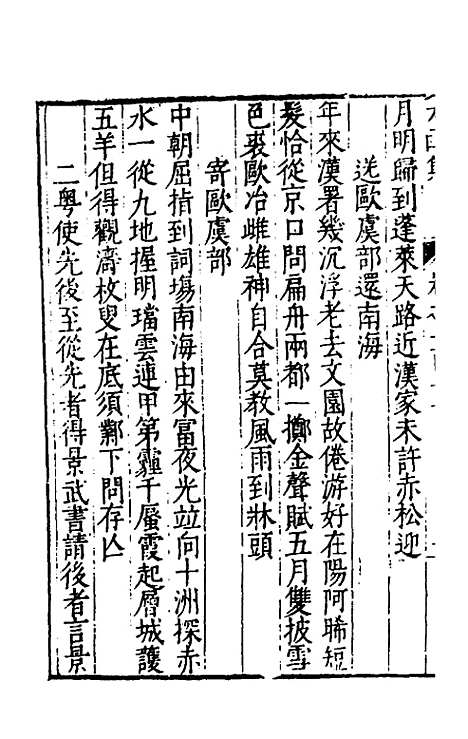 月明歸到蓬萊天路近漢家未許赤松迎
送歐虞部還南海
年來漢署幾沉浮老去文園故倦游好在陽阿晞短
髮恰從京口問扁舟兩都一擲金聲賦五月雙披雪
色裘歐冶雌雄神自合莫教風雨到牀頭
寄歐虞部
中朝屈指到詞場南海由來富夜光竝向十洲探赤
水一從九地握明璫雲連甲第霾千蜃霞起層城護
五羊但得觀濤枚叟在底須鄴下問存亾
二粤使先後至從先者得景武書請後者言景